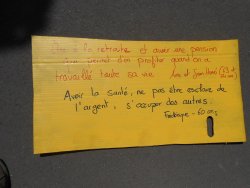 Etre à la retraite et avoir une pension
qui permet d'en profiter quand on a
travaillé toute sa vie.
Avoir la santé, ne pas être esclave de
l'argent, s'occuper des autres.
Frédérique - 60 ans